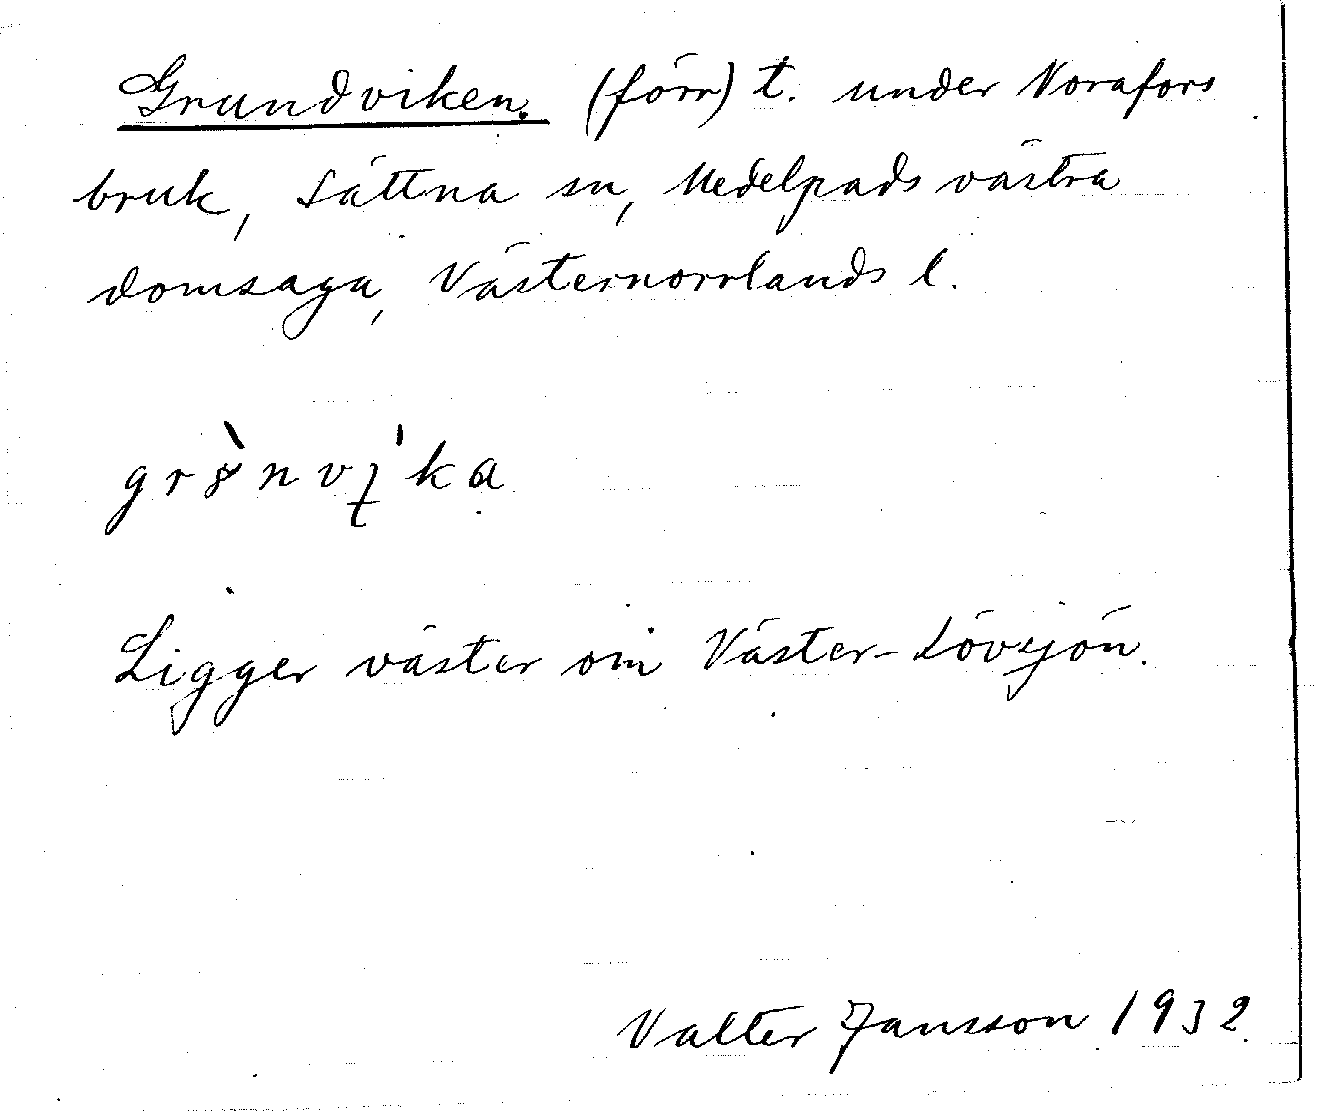 Grundviken. (förr) t. under Norafors
bruk, Sättna sn, Medelpads västra
domsaga, Västernorrlands l.
Ligger väster om Väster-Lövsjön.
Valter Jansson 1932